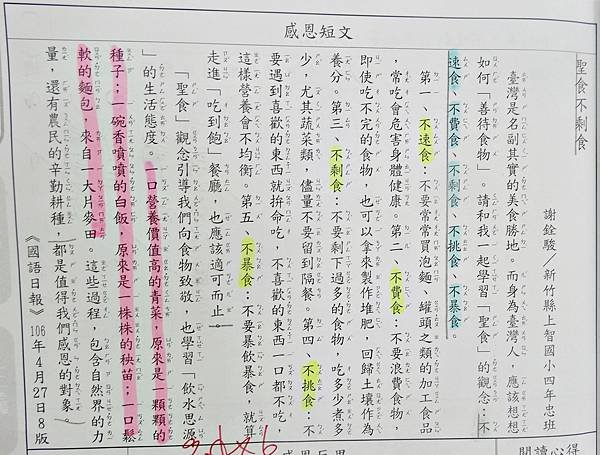 感恩短文
聖食不剩食
謝銓駿／新竹縣上智國小四年忠班
臺灣是名副其實的美食勝地。而身為臺灣人，應該想想
如何「善待食物」。請和我一起學習「聖食」的觀念：不
速食、不費食、不剩食、不挑食、不暴食。
第一、不速食：不要常常買泡麵、罐頭之類的加工食品
，常吃會危害身體健康。第二、不費食：不要浪費食物，
即使吃不完的食物，也可以拿來製作堆肥，回歸土壤作為
養分。第三、不剩食：不要剩下過多的食物，吃多少煮多
少，尤其蔬菜類，儘量不要留到隔餐。第四、不挑食：不
要遇到喜歡的東西就拚命吃，不喜歡的東西一口都不吃，
這樣營養會不均衡。第五、不暴食：不要暴飲暴食，就算
走進「吃到飽」餐廳，也應該適可而止。
「聖食」觀念引導我們向食物致敬，也學習「飲水思源
」的生活態度。一口營養價值高的青菜，原來是一顆顆的
種子；一碗香噴噴的白飯，原來是一株株的秧苗；一口鬆
軟的麵包，來自一大片麥田。這些過程，包含自然界的力
量，還有農民的辛勤耕種，都是值得我們感恩的對象。
《國語日報》106年4月27日8版
閱讀心得